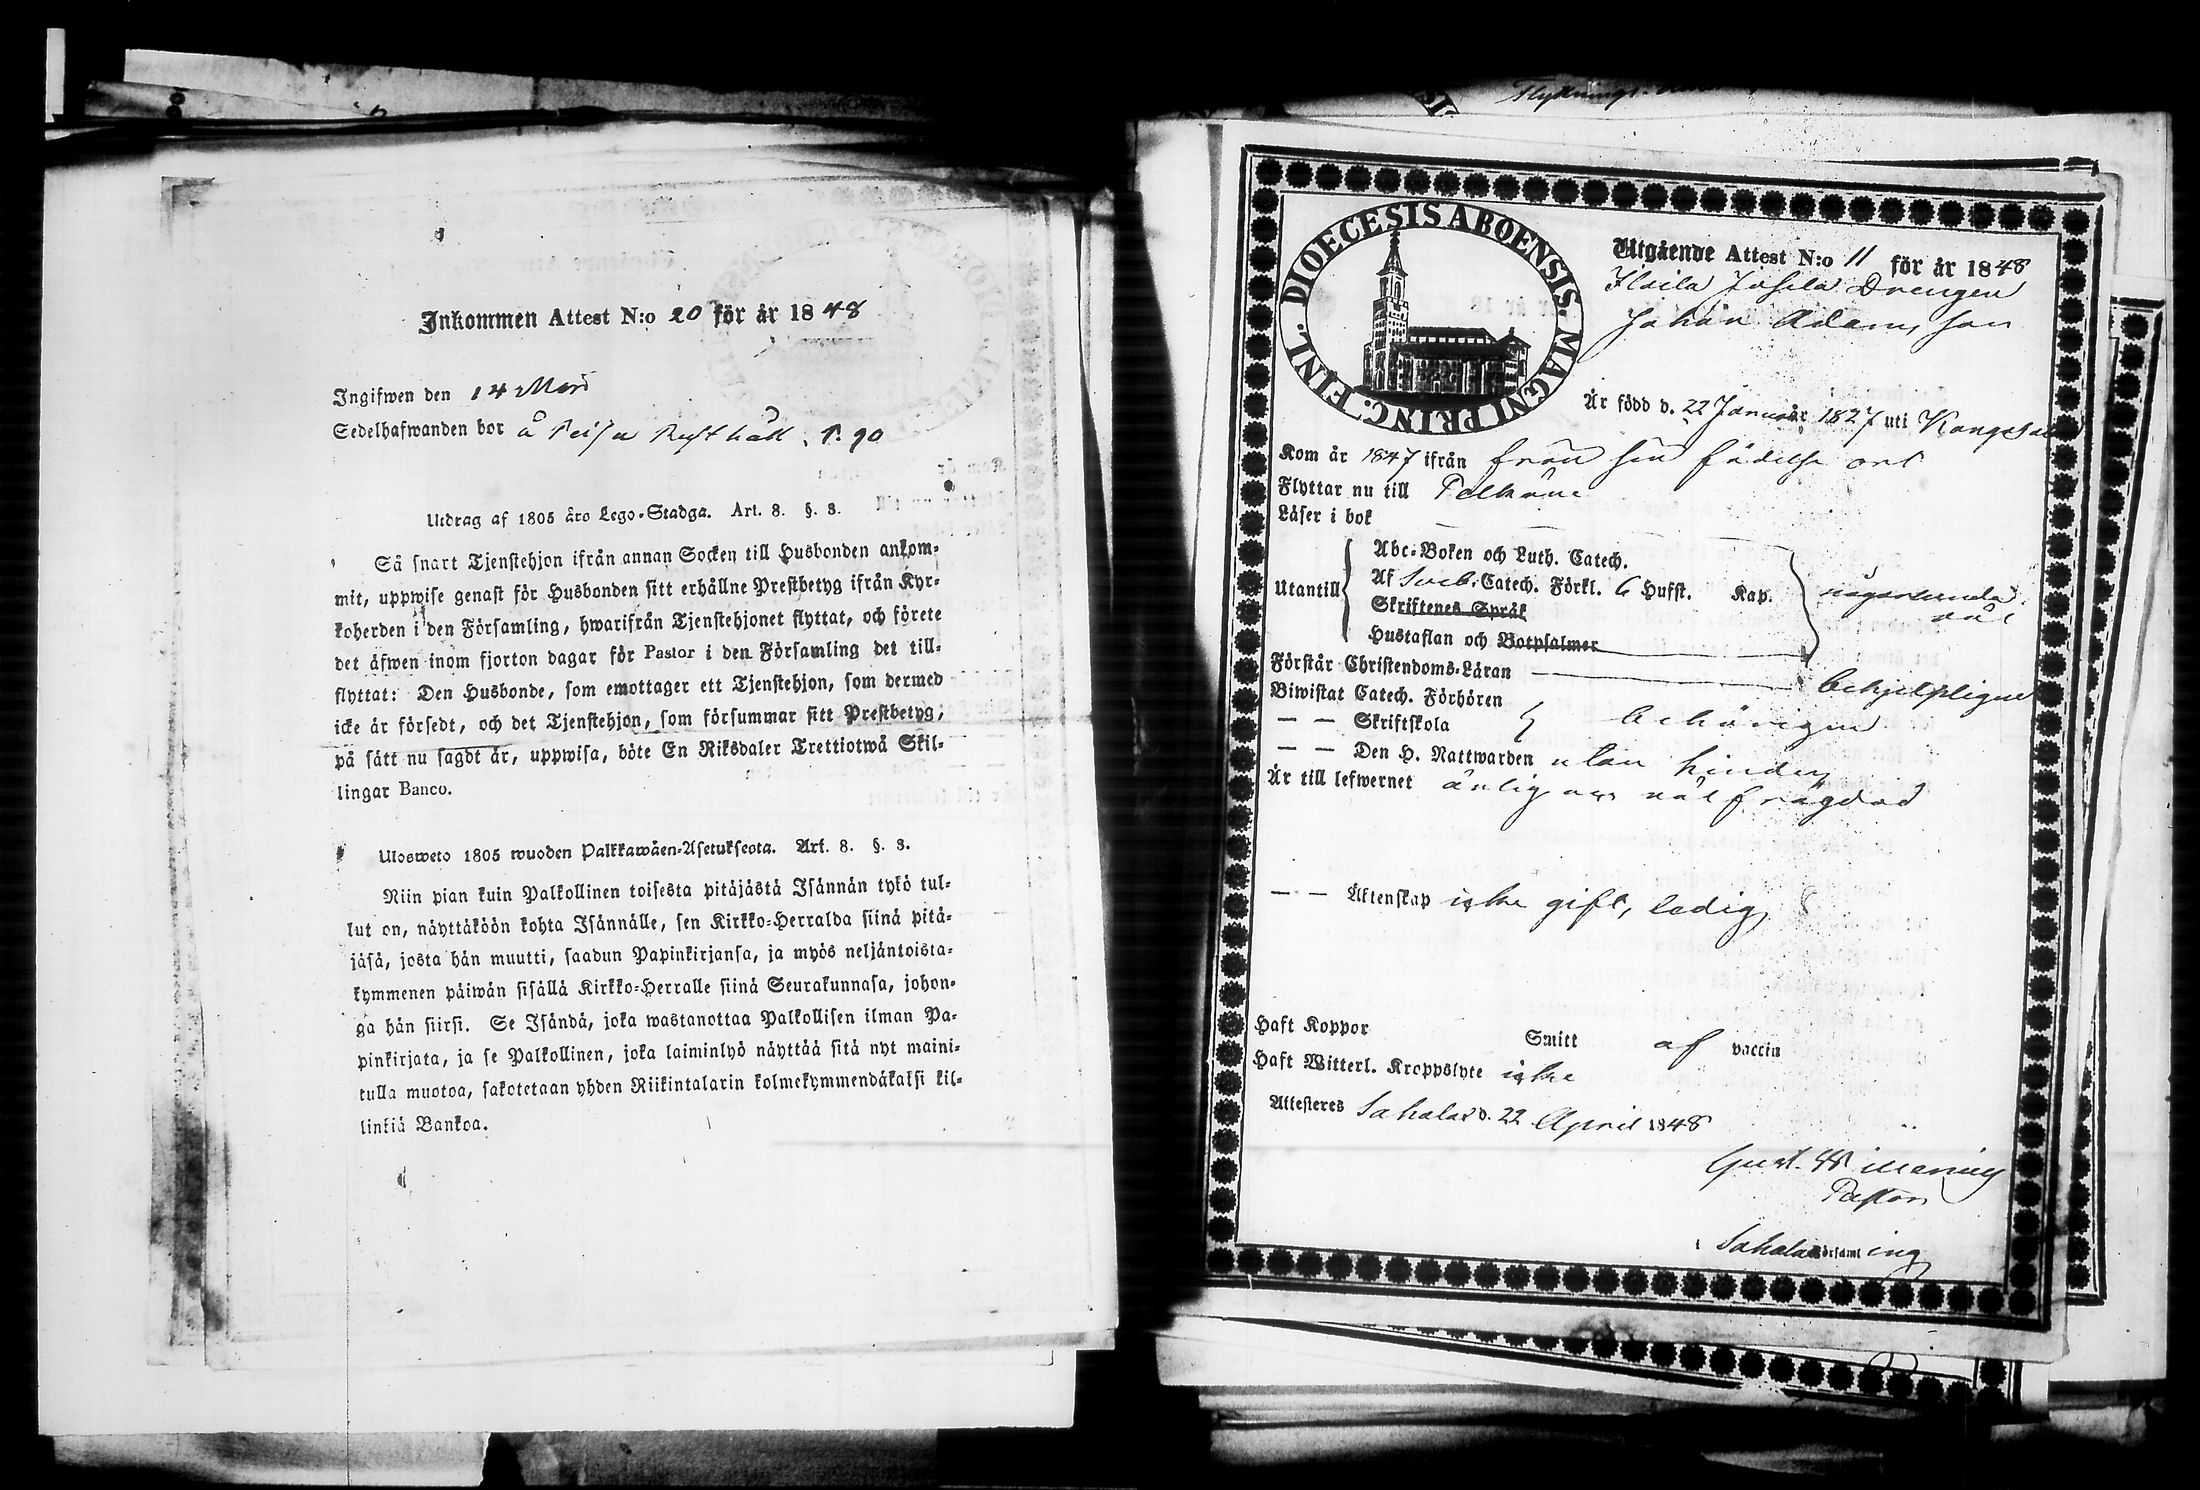 Inkommen Attest N:o 20 för år 1848
Ingifwen den 14 Maii
Sedelhafwanden bor å Rusthåll, P. 90
Utdrag af 1805 års Lego-Stadga. Art. 8. §. 3.
Så snart Tjenstehjon ifrån annan Socken till Husbonden ankom-
mit, uppwise genast för Husbonden sitt erhållne Prestbetyg ifrån Kyr-
koherden i den Församling, hwarifrån Tjenstehjonet flyttat, och förete
det äfwen inom fjorton dagar för Pastor i den Församling det till-
flyttat: Den Husbonde, som emottager ett Tjenstehjon, som dermed
icke är försedt, och det Tjenstehjon, som försummar sitt Prestbetyg,
på sätt nu sagdt är, uppwisa, böte En Riksdaler Trettiotwå Skil-
lingar Banco.
Ulosweto 1805 wuoden Palkkawäen-Asetuksesta. Art. 8. §. 3.
Niin pian kuin Palkollinen toisesta pitäjästä Isännän tykö tul-
lut on, näyttäköön kohta Isännälle, sen Kirkko-Herralda siinä pitä-
jäsä, josta hän muutti, saadun Papinkirjansa, ja myös neljäntoista-
kymmenen päiwän sisällä Kirkko-Herralle siinä Seurakunnasa, johon-
ga hän siirsi. Se Isändä, joka wastanottaa Palkollisen ilman Pa-
pinkirjata, ja se Palkollinen, joka laiminlyö näyttää sitä nyt maini-
tulla muotoa, sakotetaan yhden Riikintalarin kolmekymmendäkaksi kil-
linkiä Bankoa.
Flyttnings-
DIOECESIS ABOENSIS. MAGNI PRINC. FINL.
Utgående Attest N:o 11 för år 1848
Drengen
Johan Adamsson
Är född d. 22 Januari år 1827 uti Kangasala
Kom år 1847 ifrån från sin födelse ort
Flyttar nu till Pelkäne
Läser i bok
Utantill
Abc-Boken och Luth. Catech.
Af Sveb. Catech. Förkl. 6 Hufst. Kap. någorlunda
väl
Skriftenes Språk
Hustaflan och Botpsalmer
Förstår Christendoms-Läran behjelpligen
Biwistat Catech. Förhören
— — Skriftskola behörigen
— — Den H. Nattwarden utan hinder
Är till lefwernet ärlig och väl frägdad
— — Äktenskap icke gift, ledig
Haft Koppor Smitt af vaccin
Haft Witterl. Kroppslyte icke
Attesteres Sahalax d. 22 April 1848
Gust. Willenius
Pastor
i Sahalax Församling